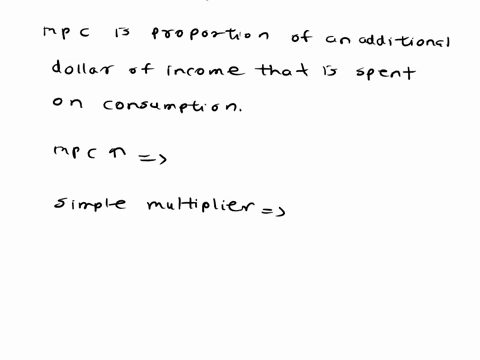 mpc is proportion of an additional
dollar of income that is spent
on consumption.
mpc ↑ =>
simple multiplier =>